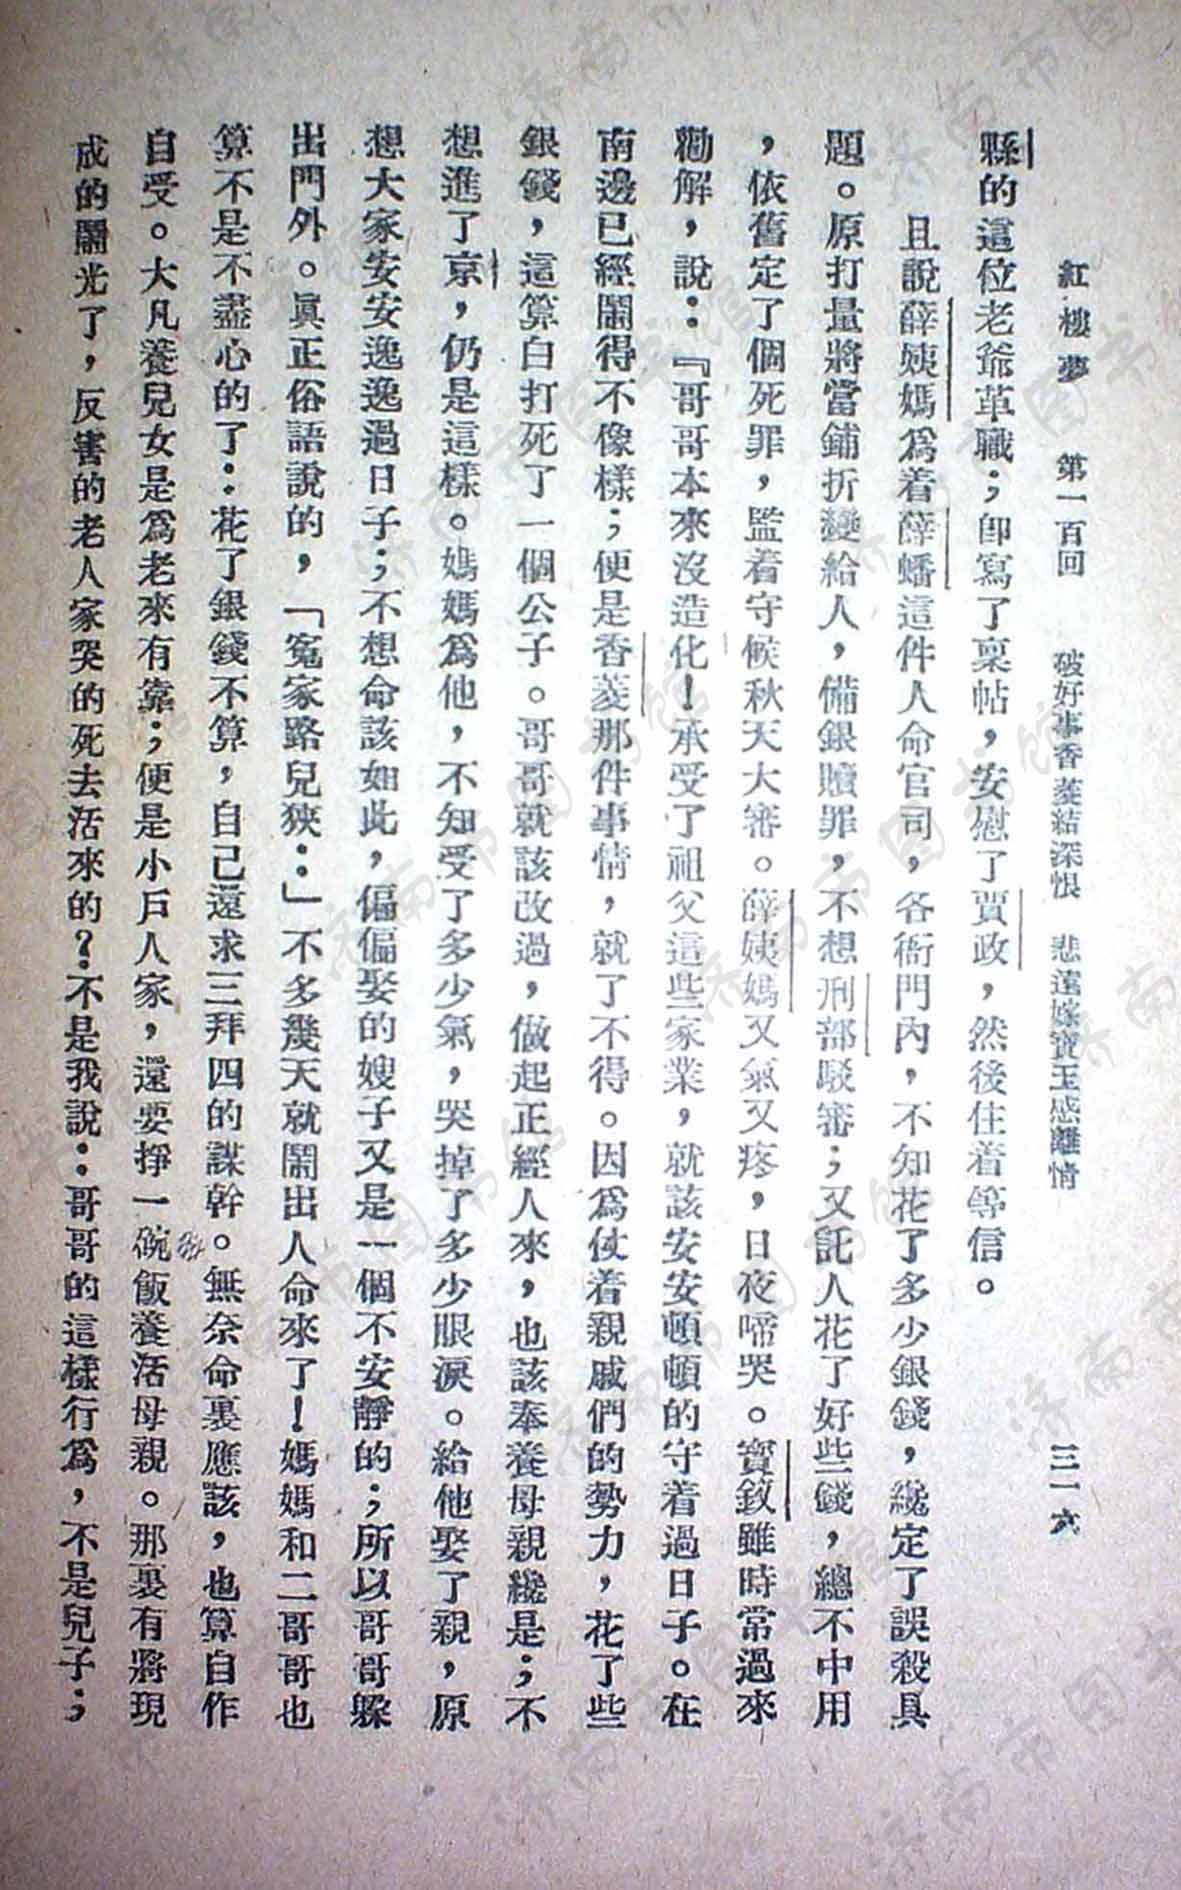 紅樓夢　第一百回　破好事香菱結深恨　悲遠嫁寶玉感離情　三一六
縣的這位老爺革職；卽寫了稟帖，安慰了賈政，然後住着等信。
且說薛姨媽爲着薛蟠這件人命官司，各衙門內，不知花了多少銀錢，纔定了誤殺具
題。原打量將當鋪折變給人，備銀贖罪，不想刑部駁審；又託人花了好些錢，總不中用
，依舊定了個死罪，監着守候秋天大審。薛姨媽又氣又疼，日夜啼哭。寶釵雖時常過來
勸解，說：『哥哥本來沒造化！承受了祖父這些家業，就該安安頓頓的守着過日子。在
南邊已經鬧得不像樣；便是香菱那件事情，就了不得。因爲仗着親戚們的勢力，花了些
銀錢，這算白打死了一個公子。哥哥就該改過，做起正經人來，也該奉養母親纔是；不
想進了京，仍是這樣。媽媽爲他，不知受了多少氣，哭掉了多少眼淚。給他娶了親，原
想大家安安逸逸過日子；不想命該如此，偏偏娶的嫂子又是一個不安靜的；所以哥哥躱
出門外。眞正俗語說的，「寃家路兒狹：」不多幾天就鬧出人命來了！媽媽和二哥哥也
算不是不盡心的了：花了銀錢不算，自己還求三拜四的謀幹。無奈命裏應該，也算自作
自受。大凡養兒女是爲老來有靠；便是小戶人家，還要掙一碗飯養活母親。那裏有將現
成的鬧光了，反害的老人家哭的死去活來的？不是我說：哥哥的這樣行爲，不是兒子；
济南市图书馆